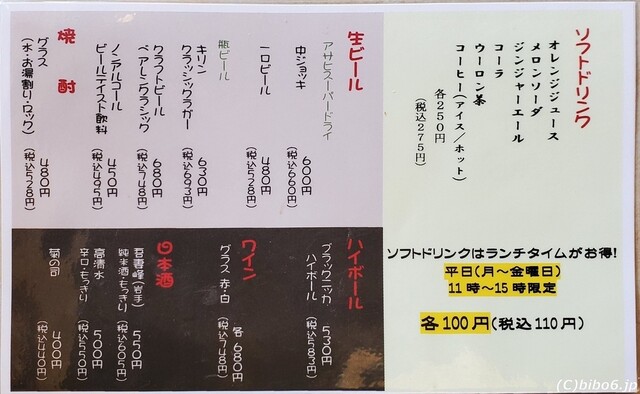 ソフトドリンク
オレンジジュース
メロンソーダ
ジンジャーエール
コーラ
ウーロン茶
コーヒー(アイス/ホット)
各250円
(税込275円)
ソフトドリンクはランチタイムがお得!
平日(月〜金曜日)
11時〜15時限定
各100円(税込110円)
生ビール
アサヒスーパードライ
中ジョッキ
600円
(税込660円)
一口ビール
480円
(税込528円)
瓶ビール
キリン
クラッシックラガー
630円
(税込693円)
クラフトビール
ベアレンクラシック
680円
(税込748円)
ノンアルコール
ビールテイスト飲料
450円
(税込495円)
焼酎
グラス
(水・お湯割り・ロック)
480円
(税込528円)
ハイボール
ブラックニッカ
ハイボール
530円
(税込583円)
ワイン
グラス 赤・白
各680円
(税込748円)
日本酒
吾妻峰(岩手)
純米酒もっきり
550円
(税込605円)
高清水
辛口・もっきり
500円
(税込550円)
菊の司
400円
(税込440円)
(C)bibo6.jp